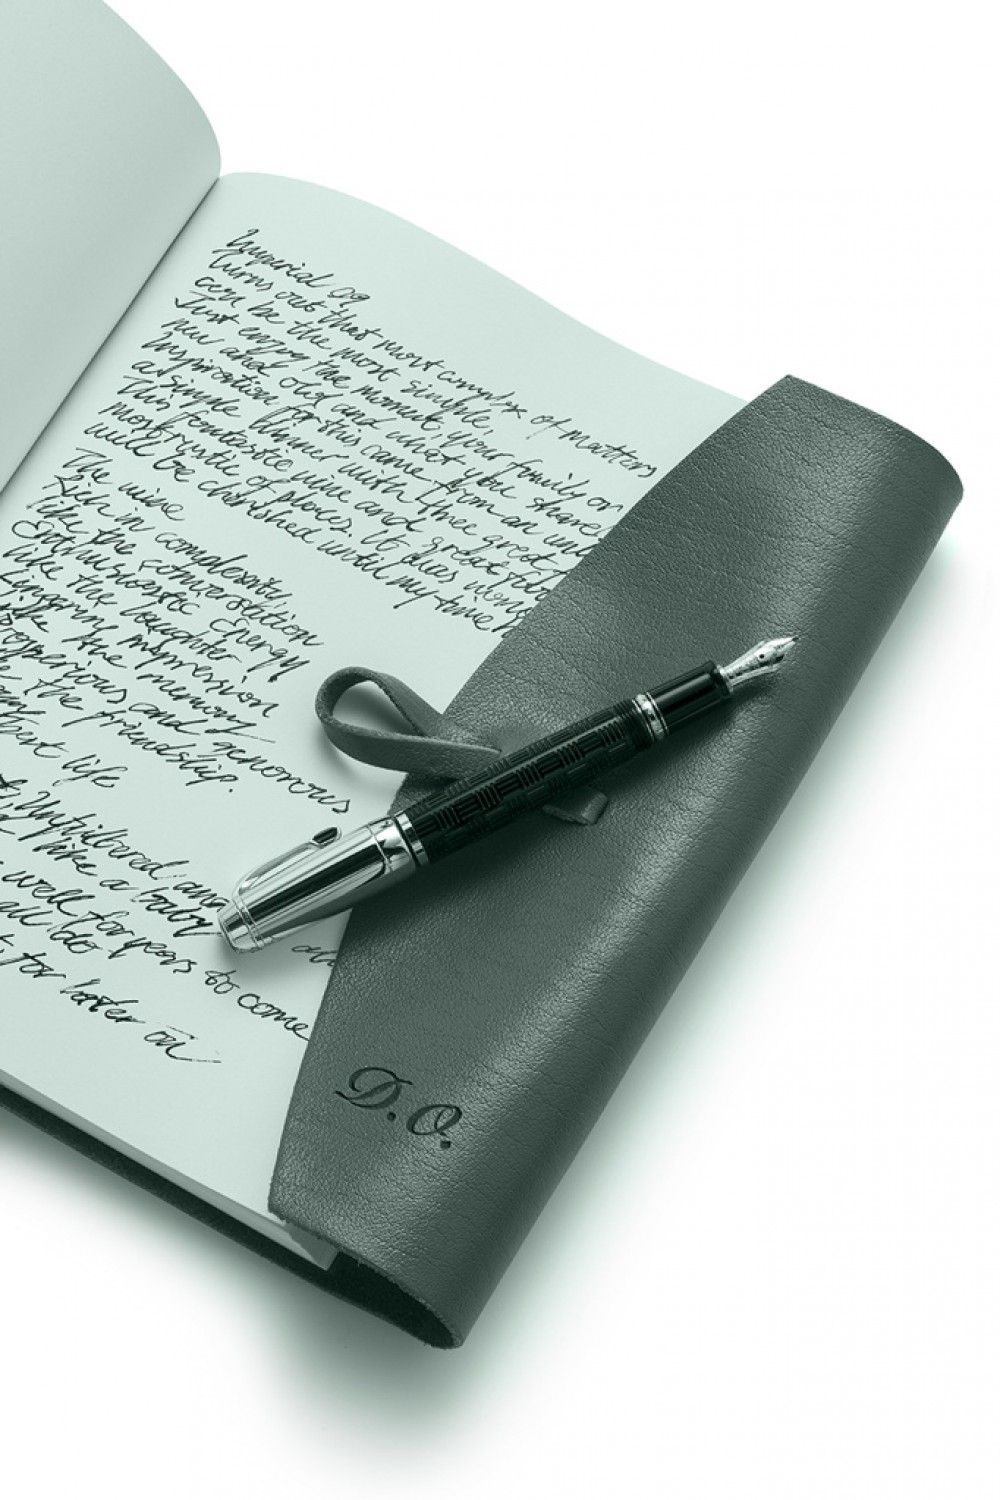 Imperial 09
turns out that most complex of matters
can be the most simple,
Just enjoy the moment, your family or
new and old and what you share
Inspiration for this came from an
a simple dinner with three great
This fantastic wine and great
most rustic of places. 16
will be cherished until my time
The wine
Rich in complexity
like the conversation
Enthusiastic Energy
like the laughter
Lingering impression
the memory
and generous
the friendship.
life
Unfiltered and
like a baby
well for years to come
all do
for later on
D.O.